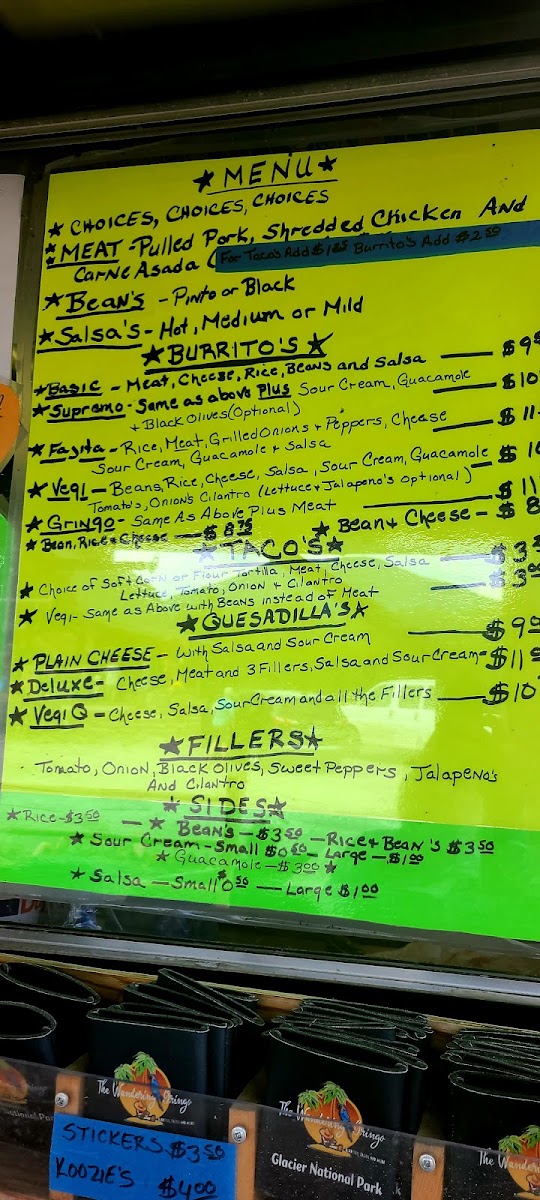 ★ MENU ★
★ CHOICES, CHOICES, CHOICES
★ MEAT - Pulled Pork, Shredded Chicken AND
Carne Asada (For Taco's Add $1.25 Burrito's Add $2.50
★ BEAN'S - PINTO or Black
★ Salsa's - Hot, Medium or Mild
★ BURRITO'S ★
★ Basic - Meat, Cheese, Rice, Beans and Salsa — $9
★ Supremo - Same as above Plus Sour Cream, Guacamole — $10
+ Black Olives (Optional)
★ Fajita - Rice, Meat, Grilled Onions + Peppers, Cheese — $11
Sour Cream, Guacamole + Salsa
★ Vegi - Beans, Rice, Cheese, Salsa, Sour Cream, Guacamole — $10
Tomato's, Onions Cilantro (Lettuce + Jalapeno's optional)
★ Gringo - Same As Above Plus Meat — $11
★ Bean, Rice + Cheese — $8.75 ★ Bean + Cheese - $8
★ TACO'S ★
★ Choice of Soft Corn or Flour Tortilla, Meat, Cheese, Salsa — $3
Lettuce, Tomato, Onion + Cilantro
★ Vegi - Same as Above with Beans instead of Meat — $3.00
★ QUESADILLA'S ★
★ PLAIN CHEESE - With Salsa and Sour Cream — $9
★ Deluxe - Cheese, Meat and 3 Fillers, Salsa and Sour Cream - $11
★ Vegi Q - Cheese, Salsa, Sour Cream and all the Fillers — $10
★ FILLERS ★
Tomato, Onion, Black Olives, Sweet Peppers, Jalapeno's
And Cilantro
★ SIDES ★
★ Rice - $3.50 — ★ Bean's - $3.50 — Rice + Bean's $3.50
★ Sour Cream - Small $0.50 - Large - $1.00
★ Guacamole - $3.00 ★
★ Salsa — Small $0.50 — Large $1.00
The Wandering Gringo
The Wandering Gringo
Glacier National Park
The Wandering
STICKERS $3.50
KOOZIE'S $4.00